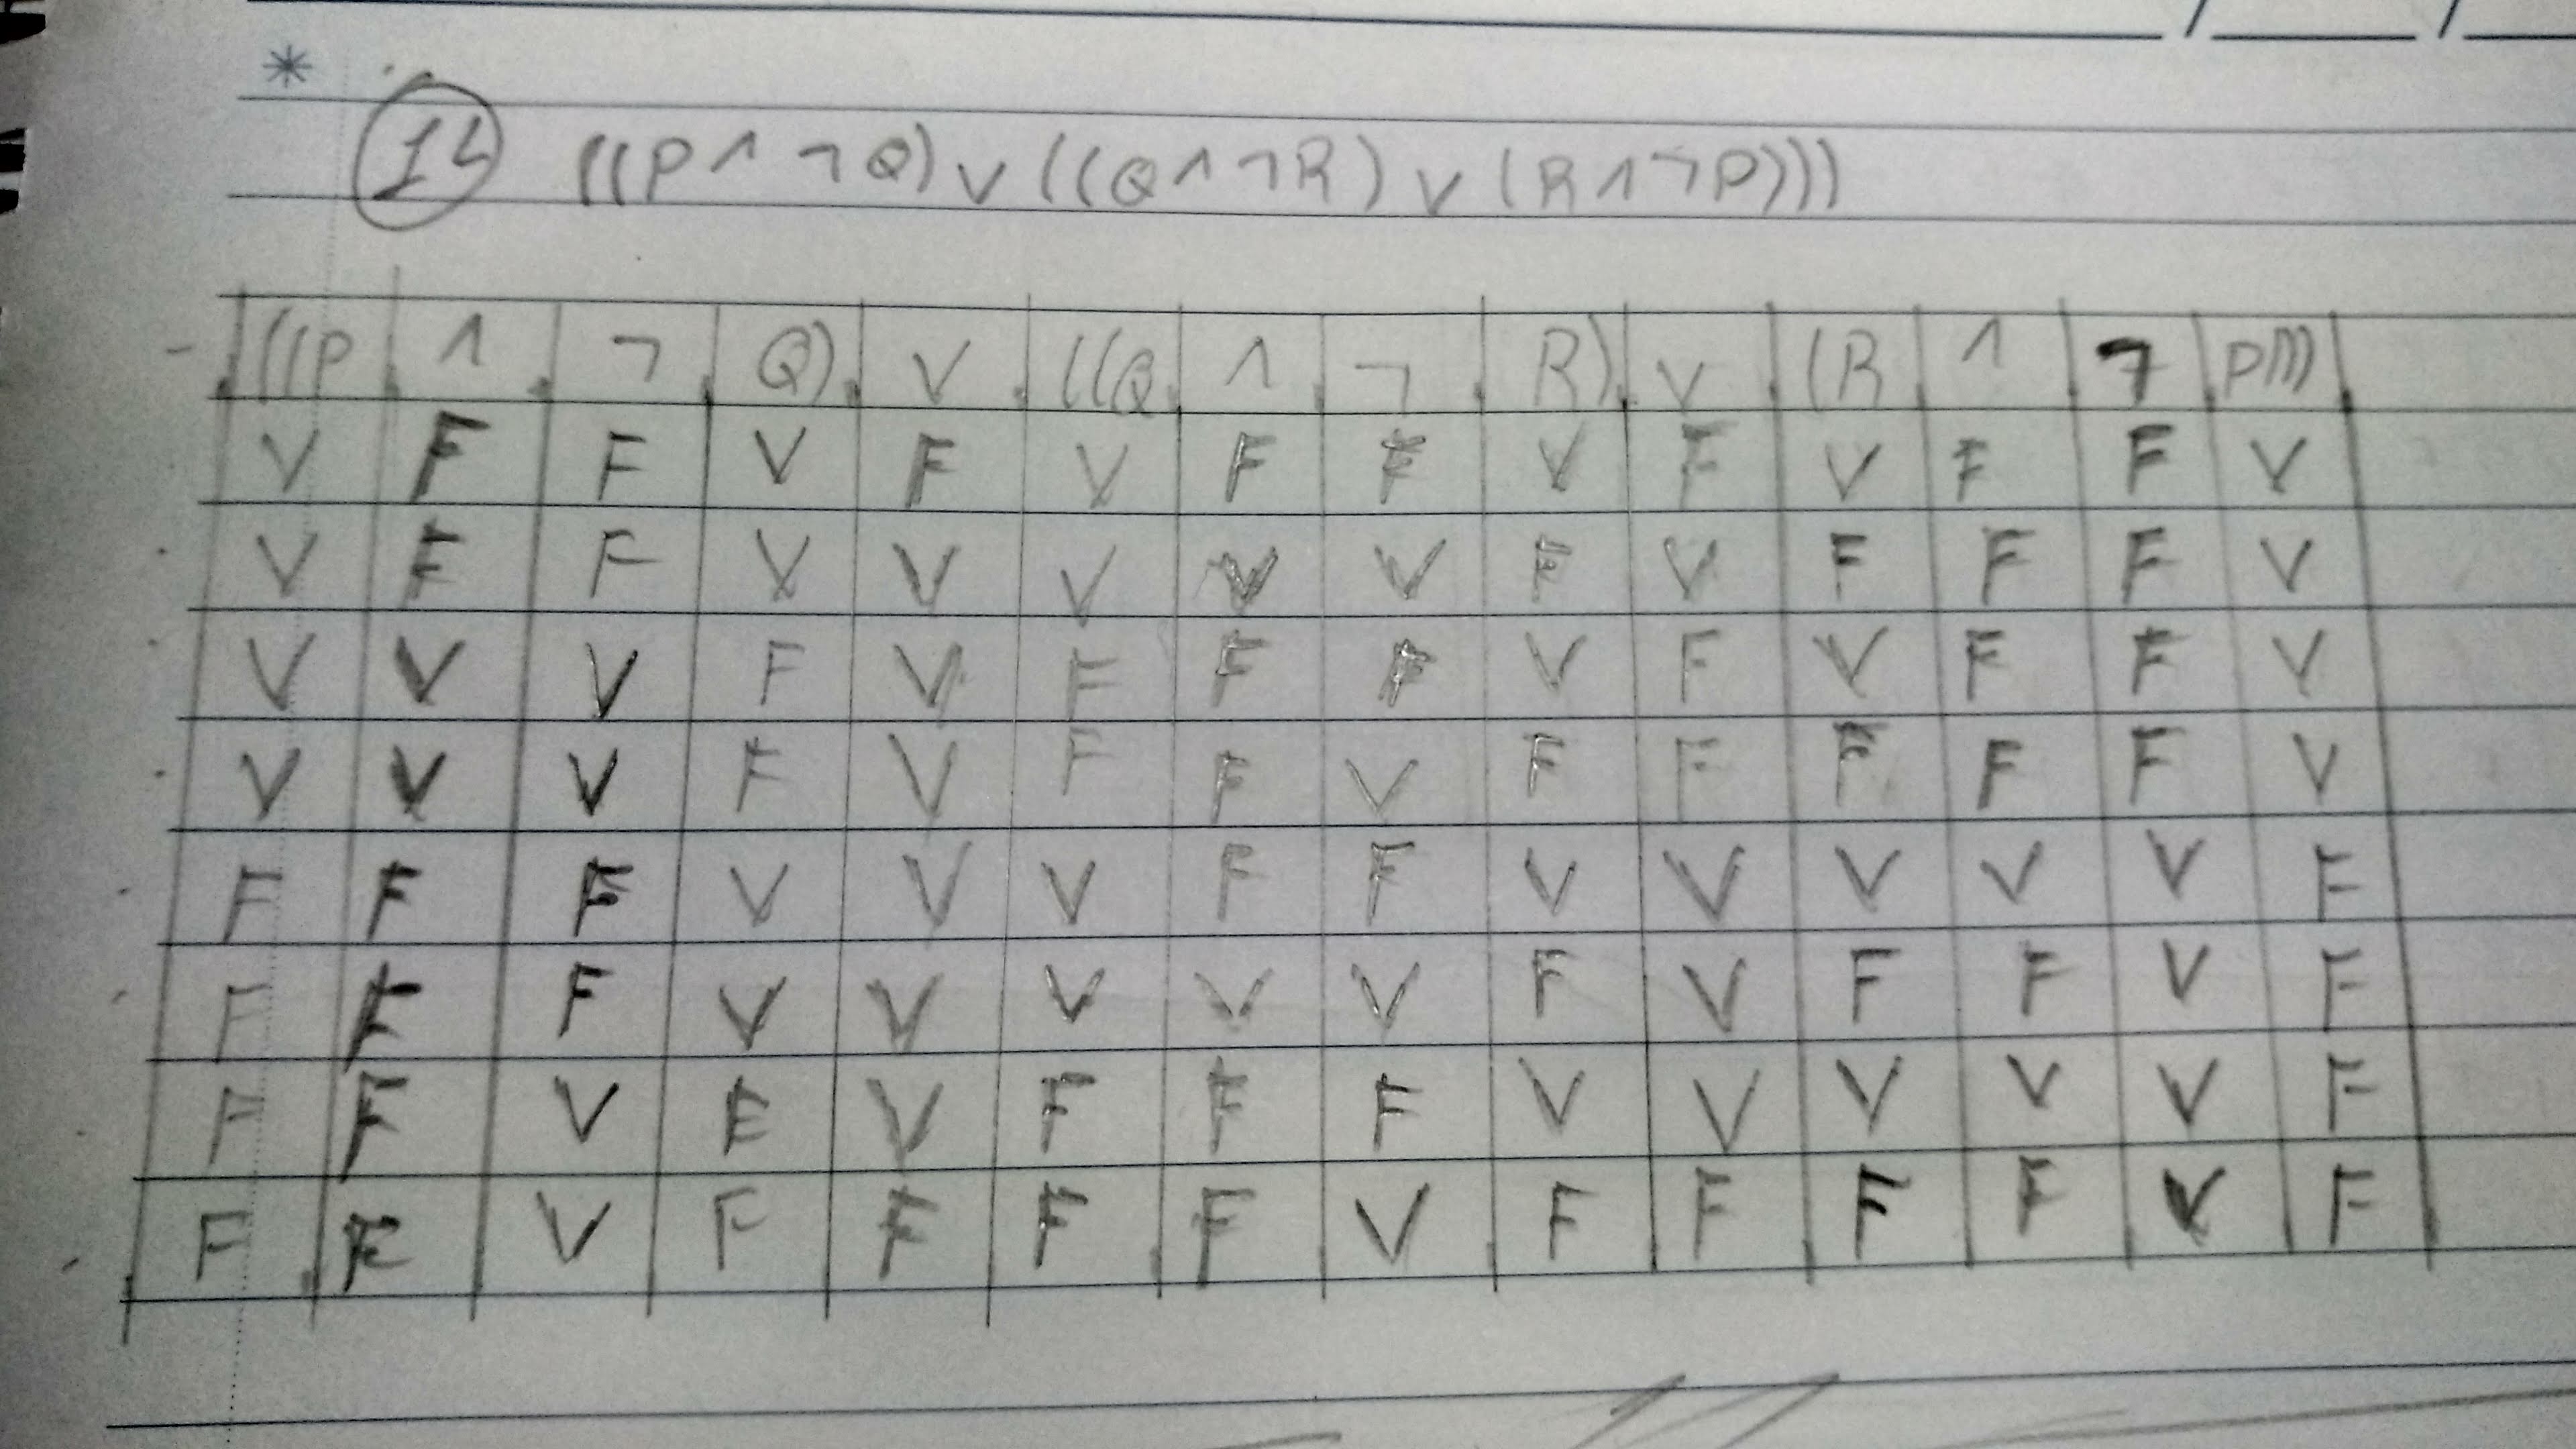 *
14 ((P∧¬Q)∨((Q∧¬R)∨(R∧¬P)))
((P ∧ ¬ Q) ∨ ((Q ∧ ¬ R) ∨ (R ∧ ¬ P)))
V F F V F V F F V F V F F V
V F F V V V V V F V F F F V
V V V F V F F F V F V F F V
V V V F V F F V F F F F F V
F F F V V V F F V V V V V F
F F F V V V V V F V F F V F
F F V F V F F F V V V V V F
F F V F F F F V F F F F V F